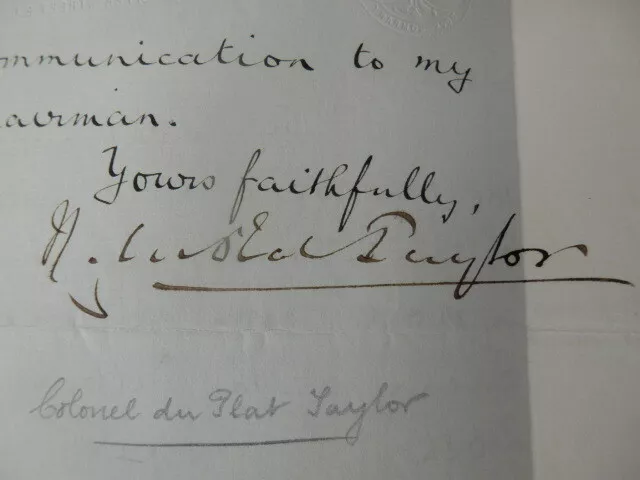 mmunication to my
airman.
Yours faithfully,
Taylor
Colonel du Plat Taylor